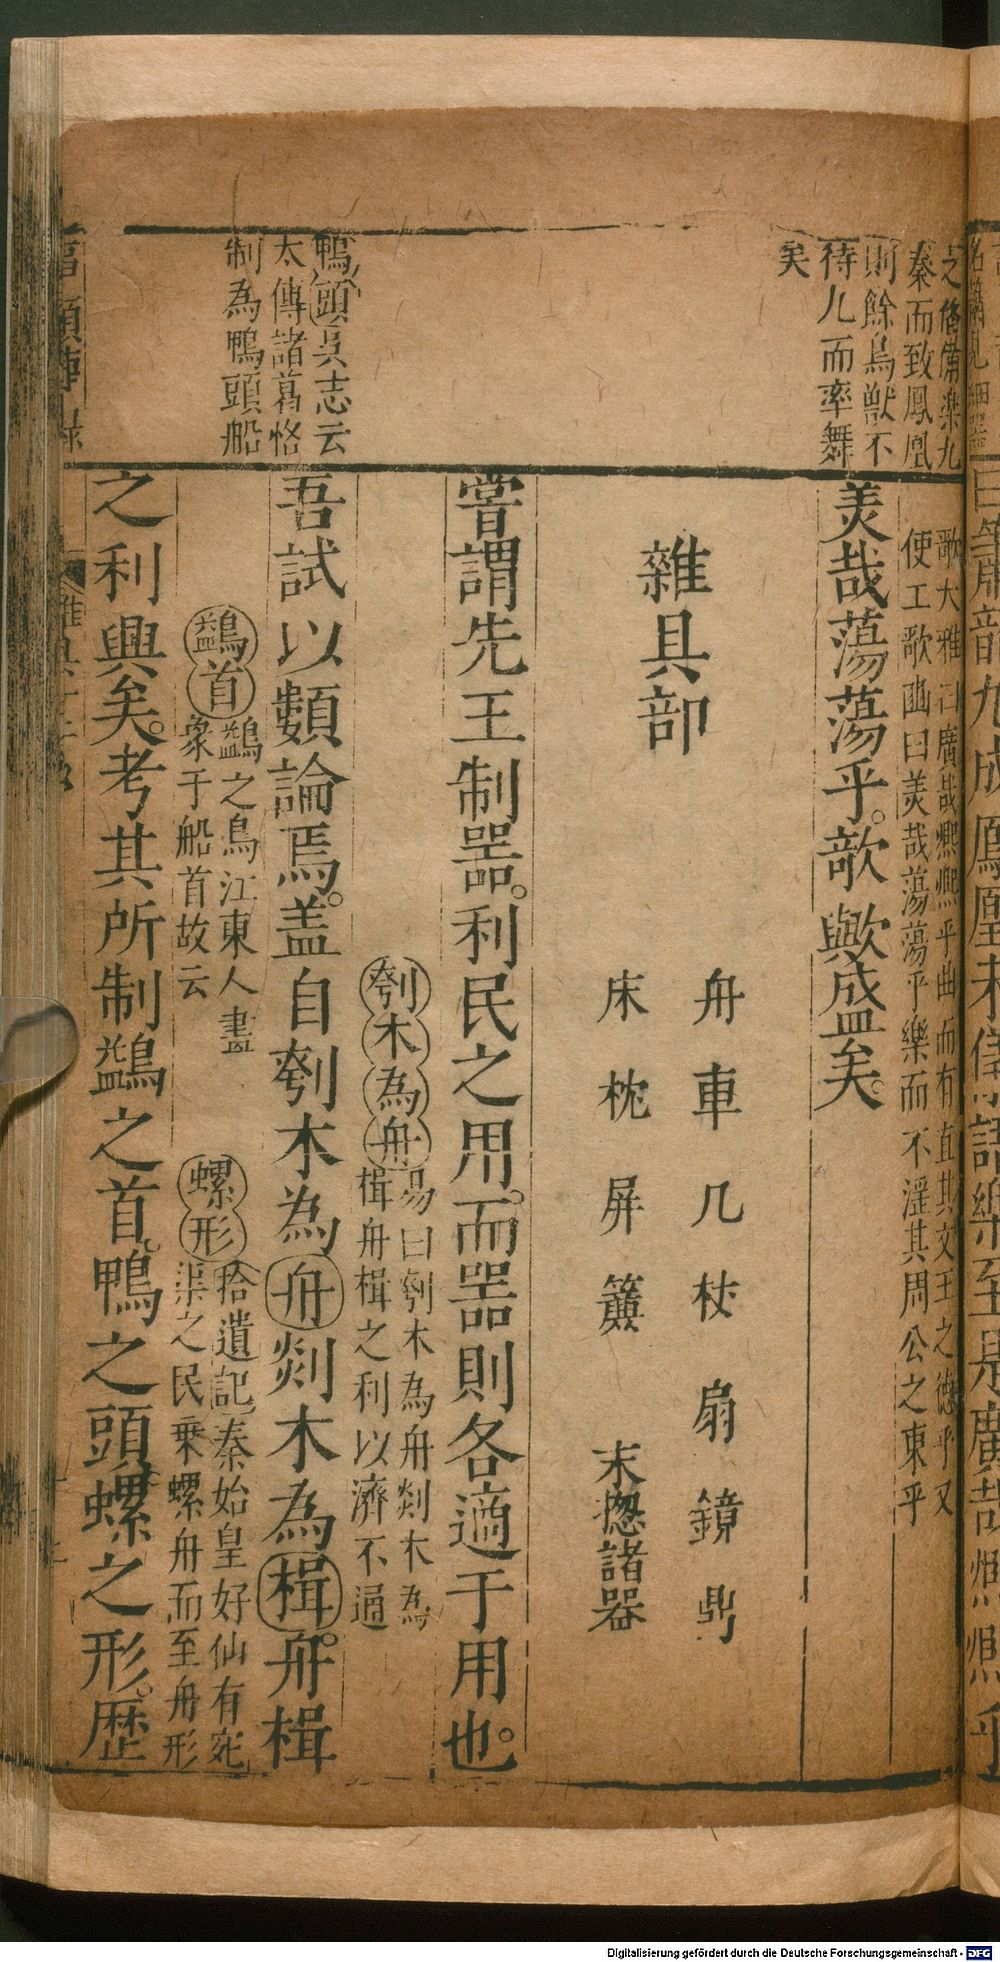 之俻備樂九
奏而致鳳凰
則餘鳥獸不
待儿而率舞
矣
鴨頭吳志云
太傅諸葛恪
制為鴨頭船
歌大雅曰廣哉熈熈乎曲而有直其文王之德乎又
使工歌豳曰羙哉蕩蕩乎樂而不滛其周公之東乎
羙哉蕩蕩乎。歆歟盛矣。
雜具部
舟車几杖扇鏡鼎
床枕屏簟 末揔諸器
嘗謂先王制噐。利民之用。而噐則各適于用也。
刳木為舟 易曰刳木為舟剡木為
楫舟楫之利以濟不通
吾試以類論焉。盖自刳木為舟剡木為楫。舟楫
鷁首 鷁之鳥江東人畫
象于船首故云
螺形 拾遺記秦始皇好仙有宛
渠之民乗螺舟而至舟形
之利興矣。考其所制鷁之首。鴨之頭。螺之形。歴
曰簫韶九成鳳凰来儀
Digitalisierung gefördert durch die Deutsche Forschungsgemeinschaft - DFG